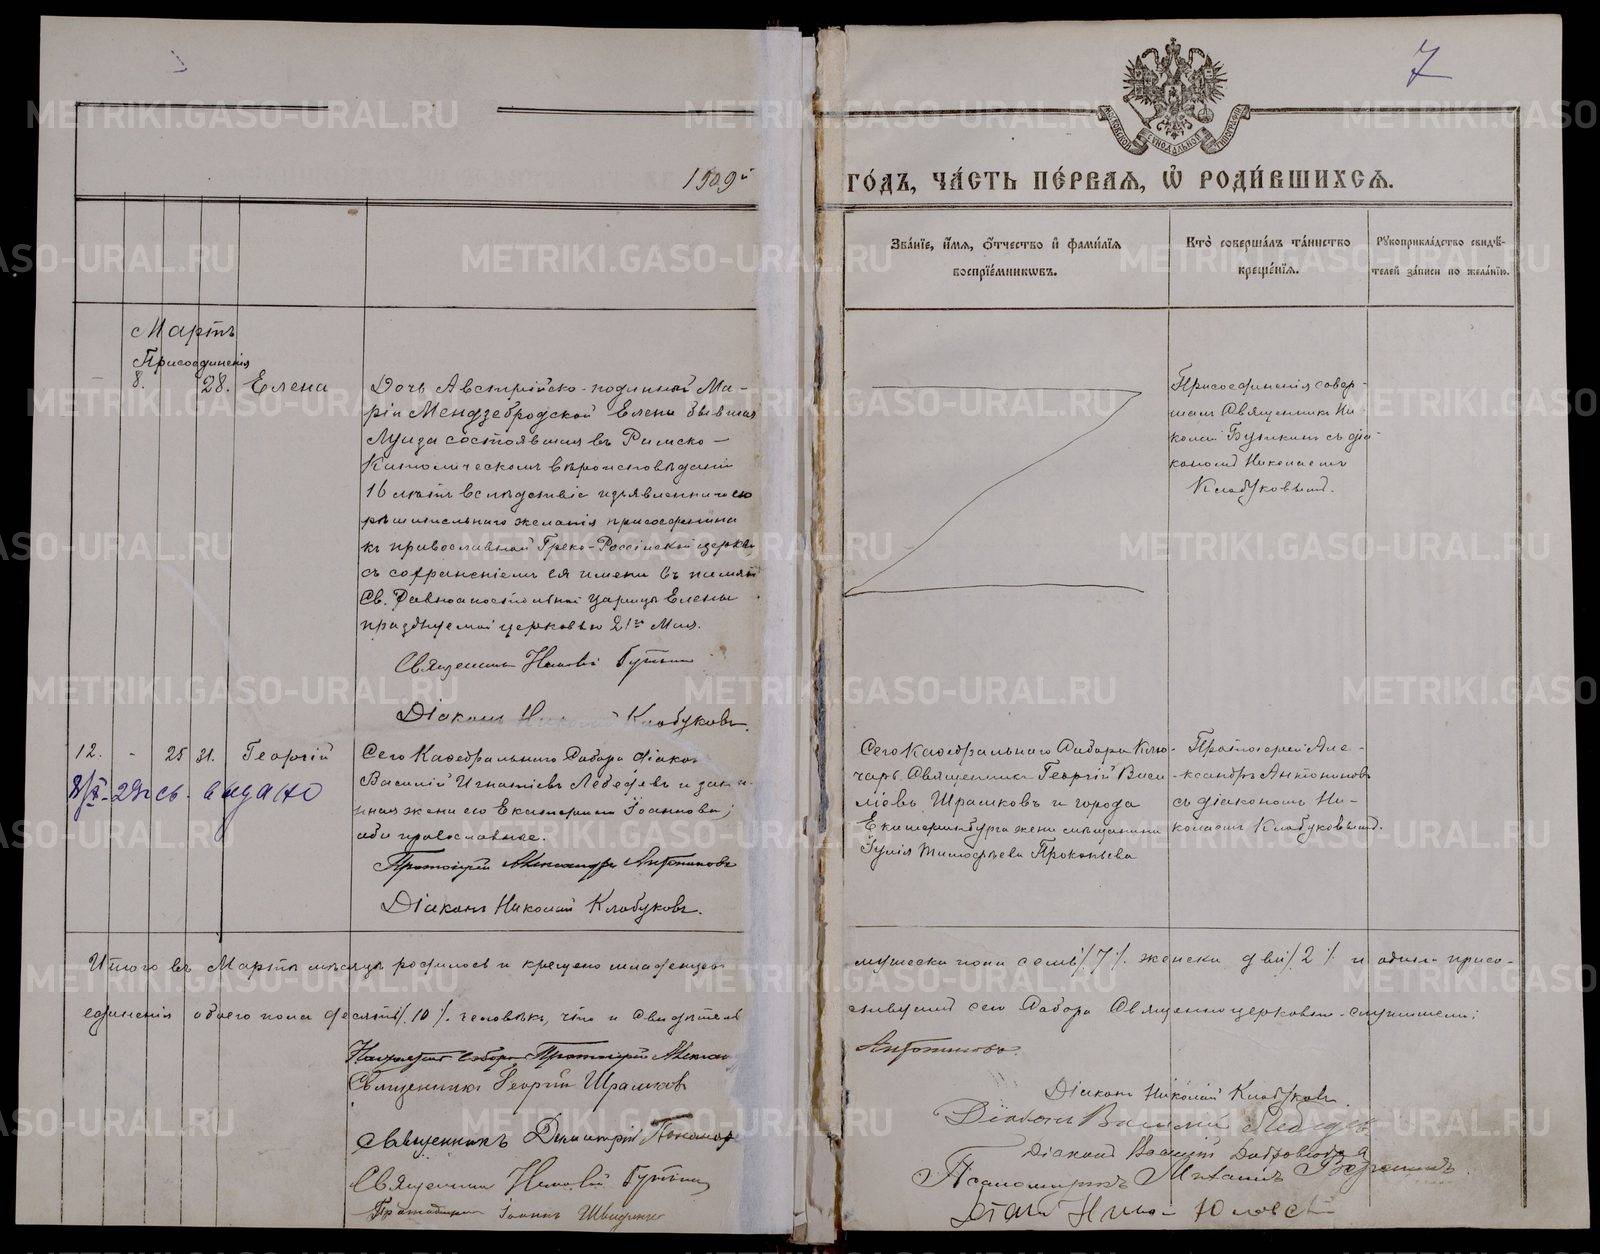 7
МОСКОВСКОЙ СѴНОДАЛЬНОЙ ТИПОГРАФІИ
1909й
ГО́ДЪ, ЧА́СТЬ ПЕ́РВАѦ, Ѡ҆ РОДИ́ВШИХСѦ.
Зва́нїе, и҆́мѧ, ѻ҆́тчество и҆ фами́лїѧ
воспрїе́мникѡвъ.
Кто̀ соверша́лъ та́инство
креще́нїѧ.
Рꙋкоприкла́дство свидѣ́-
телей за́писи по жела́нїю.
Мартъ
Присоединенія
8. 28. Елена
Дочь Австрійско-подданной Ма-
ріи Мендзебродской Елена бывшая
Луиза состоявшая въ Римско-
Католическомъ вѣроисповѣданіи
16 лѣтъ вслѣдствіе изъявленнаго ею
рѣшительнаго желанія присоединена
къ православной Греко-Россійской церкви
съ сохраненіемъ ея имени въ память
Св. Равноапостольной Царицы Елены
празднуемой церковью 21го Мая.
Священникъ Николай
Діаконъ Николай Клобуковъ.
Присоединенія совер-
шалъ Священникъ Ни-
колай съ діа-
кономъ Николаемъ
Клобуковымъ.
12. - 25 31. Георгій
Сего Каѳедральнаго Собора діаконъ
Василій Игнатіевъ Лебедевъ и зако-
нная жена его Екатерина Іоаннова;
оба православные.
выдано
Протоіерей Александръ Антониновъ
Діаконъ Николай Клобуковъ.
Сего Каѳедральнаго Собора Клю-
чарь Священникъ Георгій Васи-
ліевъ Шрамковъ и города
Екатеринбурга жена мѣщанина
Іулія Тимофѣева Прокопьева
Протоіерей Але-
ксандръ Антониновъ
съ діакономъ Ни-
колаемъ Клобуковымъ.
Итого въ Мартѣ мѣсяцѣ родилось и крещено младенцевъ мужеска пола семь /7/. женска два /2/ и одно присо-
единенія обоего пола десять /10/. человѣкъ, что и свидѣтельствуемъ сего Собора Священноцерковно-служители:
Настоятель Собора Протоіерей Александръ Антониновъ.
Священникъ Георгій Шрамковъ
Священникъ Димитрій
Священникъ Николай
Іоаннъ
Діаконъ Николай Клобуковъ.
Діаконъ Василій Лебедевъ
Діаконъ Василій
Псаломщикъ Михаилъ